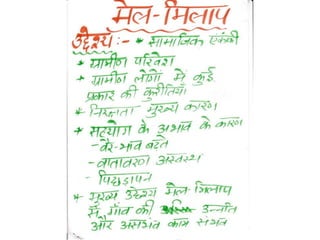 मेल-मिलाप
उद्देश्य:- * सामाजिक एकांकी
* ग्रामीण परिवेश
* ग्रामीण लोगों में कई
प्रकार की कुरीतियाँ
* निरक्षरता मुख्य कारण
* सहयोग के अभाव के कारण
- वैर-भाव बढ़ते
- वातावरण अस्वस्थ
- पिछड़ापन
* मुख्य उद्देश्य मेल मिलाप
से गाँव की उन्नति
और असंभव काम संभव